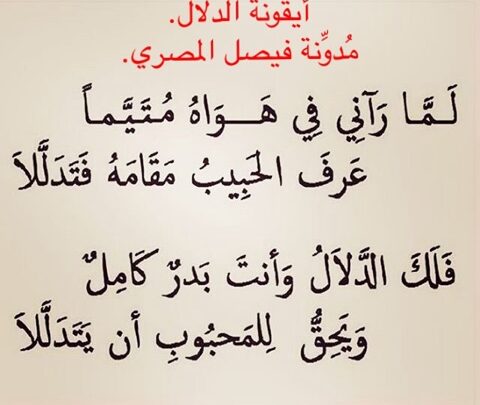 أيقونة الدلال.
مُدوِّنة فيصل المصري.
لَمَّا رَآنِي فِي هَوَاهُ مُتَيَّماً
عَرفَ الحَبِيبُ مَقَامَهُ فَتَدَلَّلاَ
فَلَكَ الدَّلاَلُ وَأنتَ بَدرٌ كَامِلٌ
وَيَحِقُّ لِلمَحبُوبِ أن يَتَدَلَّلاَ